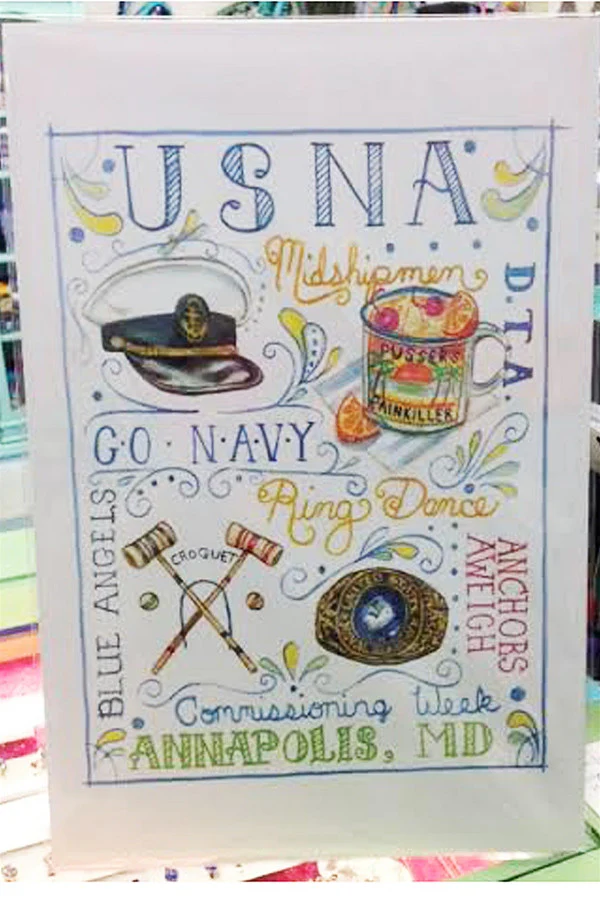 USNA
Midshipmen
D.T.A.
PUSSER'S
PAINKILLER
GO · N·A·V·Y
Ring Dance
BLUE ANGELS
CROQUET
ANCHORS
AWEIGH
Commissioning Week
ANNAPOLIS, MD